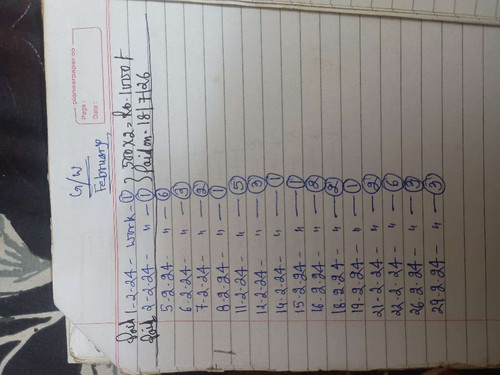 pioneerpaper.co
Page :
Date :
G/W
February
Paid 1-2-24 - work - ① } 500 x 2 = Rs. 1000/-
Paid 2-2-24 - " - ① } Paid on - 18/7/26
5-2-24 - " - ⑥
6-2-24 - " - ③
7-2-24 - " - ②
8-2-24 - " - ①
11-2-24 - " - ⑤
12-2-24 - " - ③
14-2-24 - " - ①
15-2-24 - " - ①
16-2-24 - " - ②
18-2-24 - " - ②
19-2-24 - " - ①
21-2-24 - " - ②
22-2-24 - " - ⑥
26-2-24 - " - ③
29-2-24 - " - ③